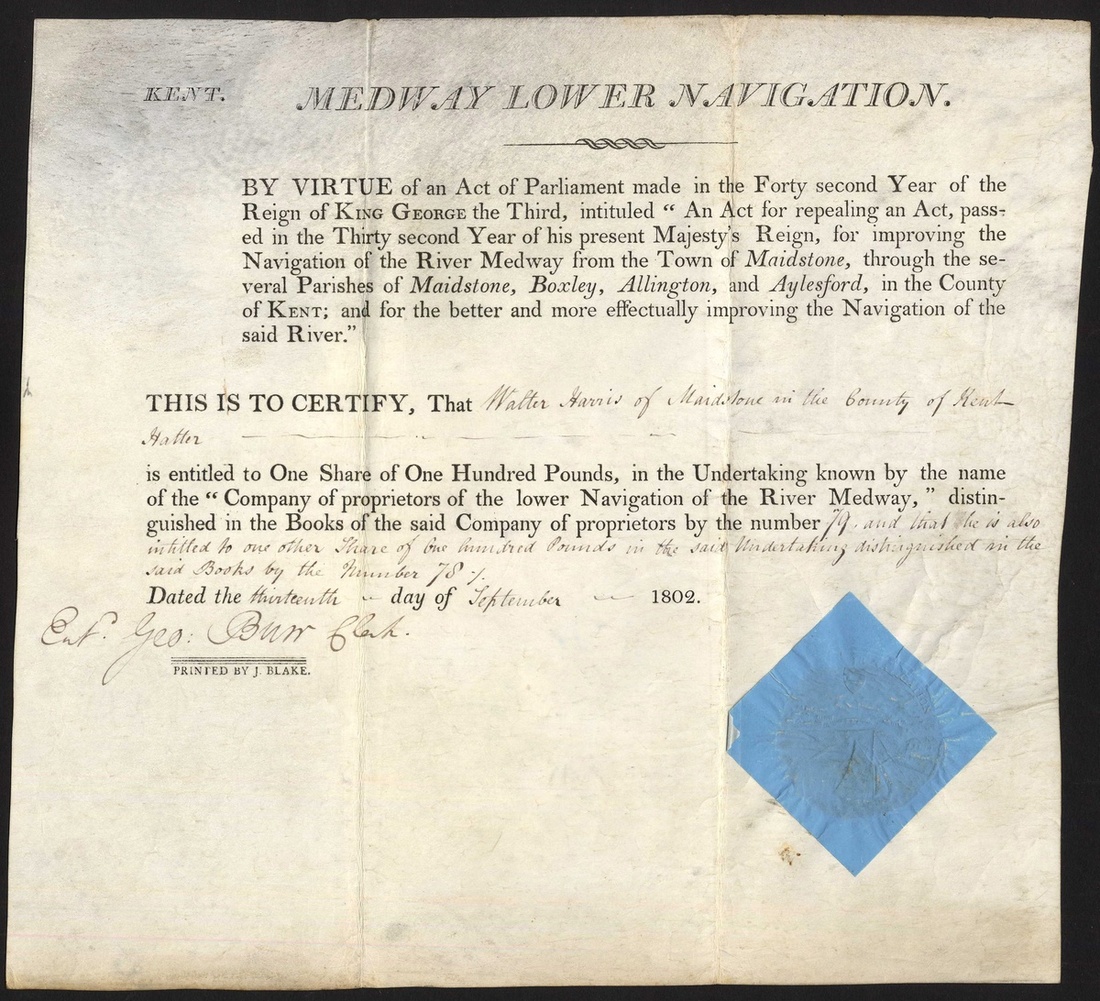 KENT. MEDWAY LOWER NAVIGATION.
BY VIRTUE of an Act of Parliament made in the Forty second Year of the
Reign of KING GEORGE the Third, intituled “ An Act for repealing an Act, pass-
ed in the Thirty second Year of his present Majesty's Reign, for improving the
Navigation of the River Medway from the Town of Maidstone, through the se-
veral Parishes of Maidstone, Boxley, Allington, and Aylesford, in the County
of KENT; and for the better and more effectually improving the Navigation of the
said River.”
THIS IS TO CERTIFY, That Walter Harris of Maidstone in the County of Kent
Hatter
is entitled to One Share of One Hundred Pounds, in the Undertaking known by the name
of the “ Company of proprietors of the lower Navigation of the River Medway, ” distin-
guished in the Books of the said Company of proprietors by the number 79. and that he is also
intitled to one other Share of One hundred Pounds in the said Undertaking distinguished in the
said Books by the Number 78
Dated the thirteenth day of September 1802.
Entd. Geo: Burr Clerk.
PRINTED BY J. BLAKE.